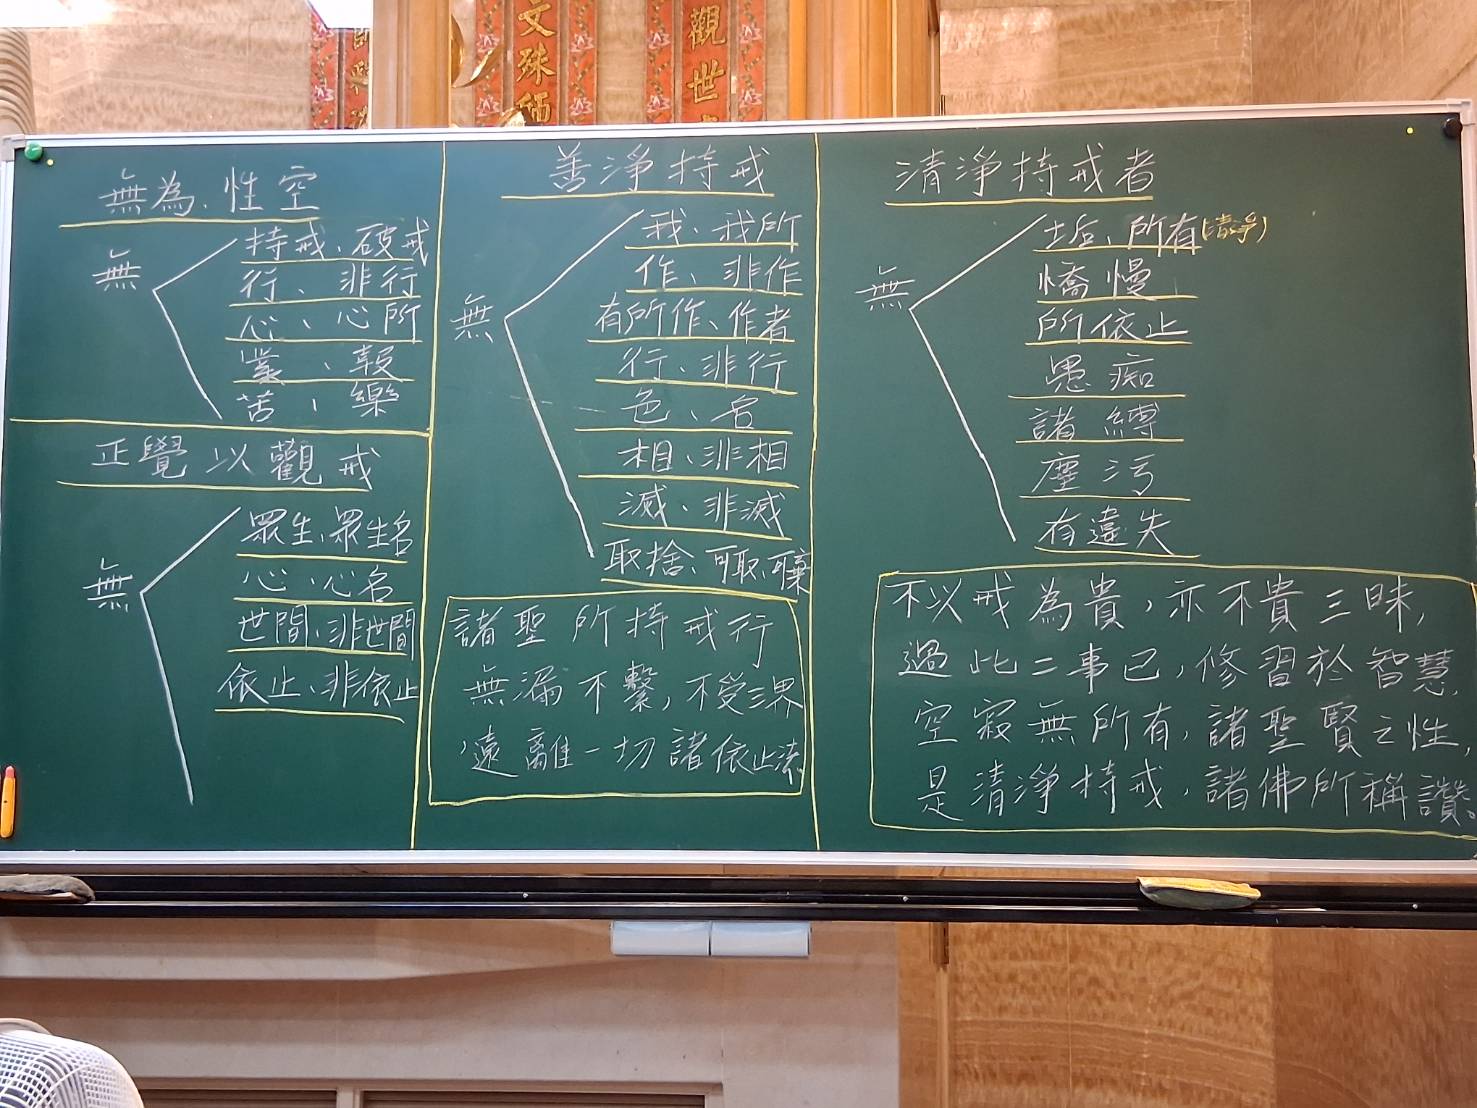 文殊師
觀世
無為、性空
無
持戒、破戒
行、非行
心、心所
業、報
苦、樂
正覺以觀戒
無
眾生、眾生名
心、心名
世間、非世間
依止、非依止
善淨持戒
無
我、我所
作、非作
有所作、作者
行、非行
色、名
相、非相
滅、非滅
取捨、可取、可棄
諸聖所持戒行
無漏不繫，不受三界
，遠離一切諸依止法
清淨持戒者
無
垢、所有(清淨)
憍慢
所依止
愚痴
諸縛
塵污
有違失
不以戒為貴，亦不貴三昧，
過此二事已，修習於智慧，
空寂無所有，諸聖賢之性，
是清淨持戒，諸佛所稱讚。